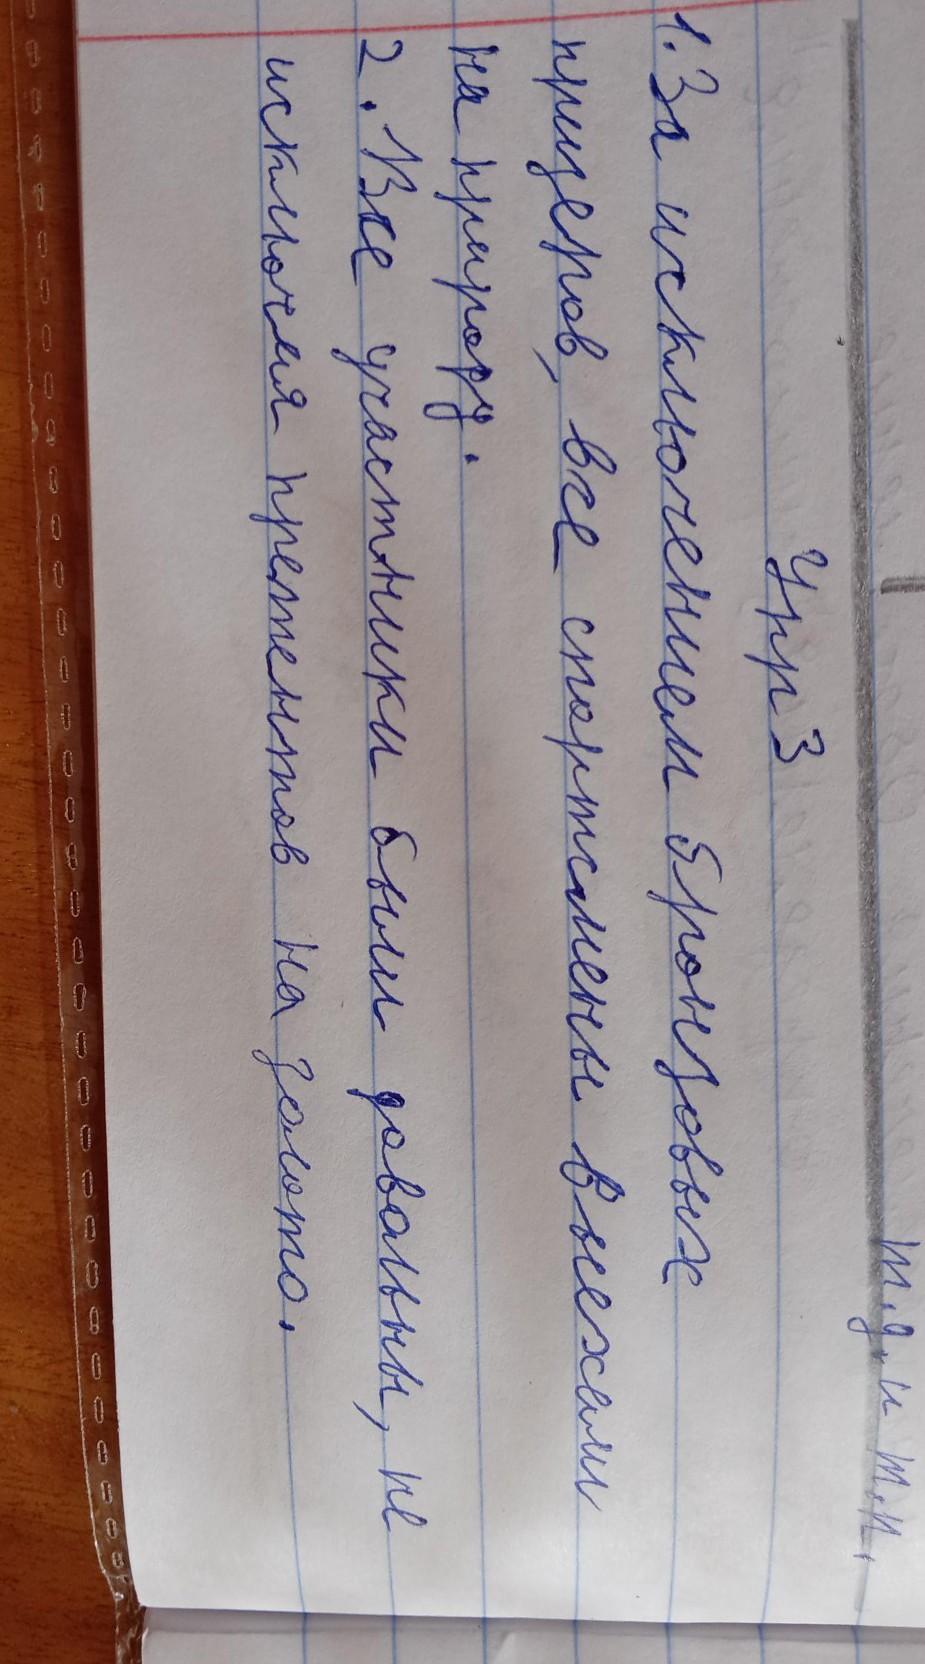 т.д. и т.п.
Упр 3
1. За исключением бронзовых
прицеров, все спортсмены выехали
на природу.
2. Все участники были довольны, не
исключая претентов на золото.